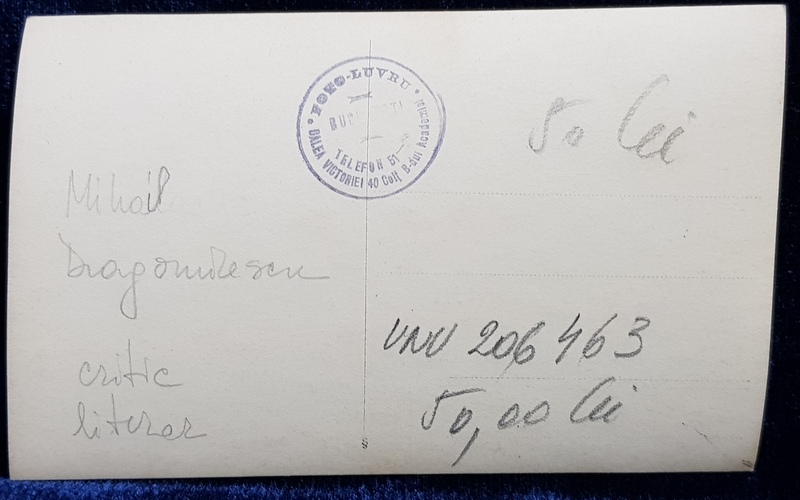 FOTO-LUVRU
BUCUREȘTI
TELEFON 51-
CALEA VICTORIEI 40 Colț B-dul Academiei
50 lei
Mihail
Dragomirescu
critic
literar
UNU 206463
50,00 lei